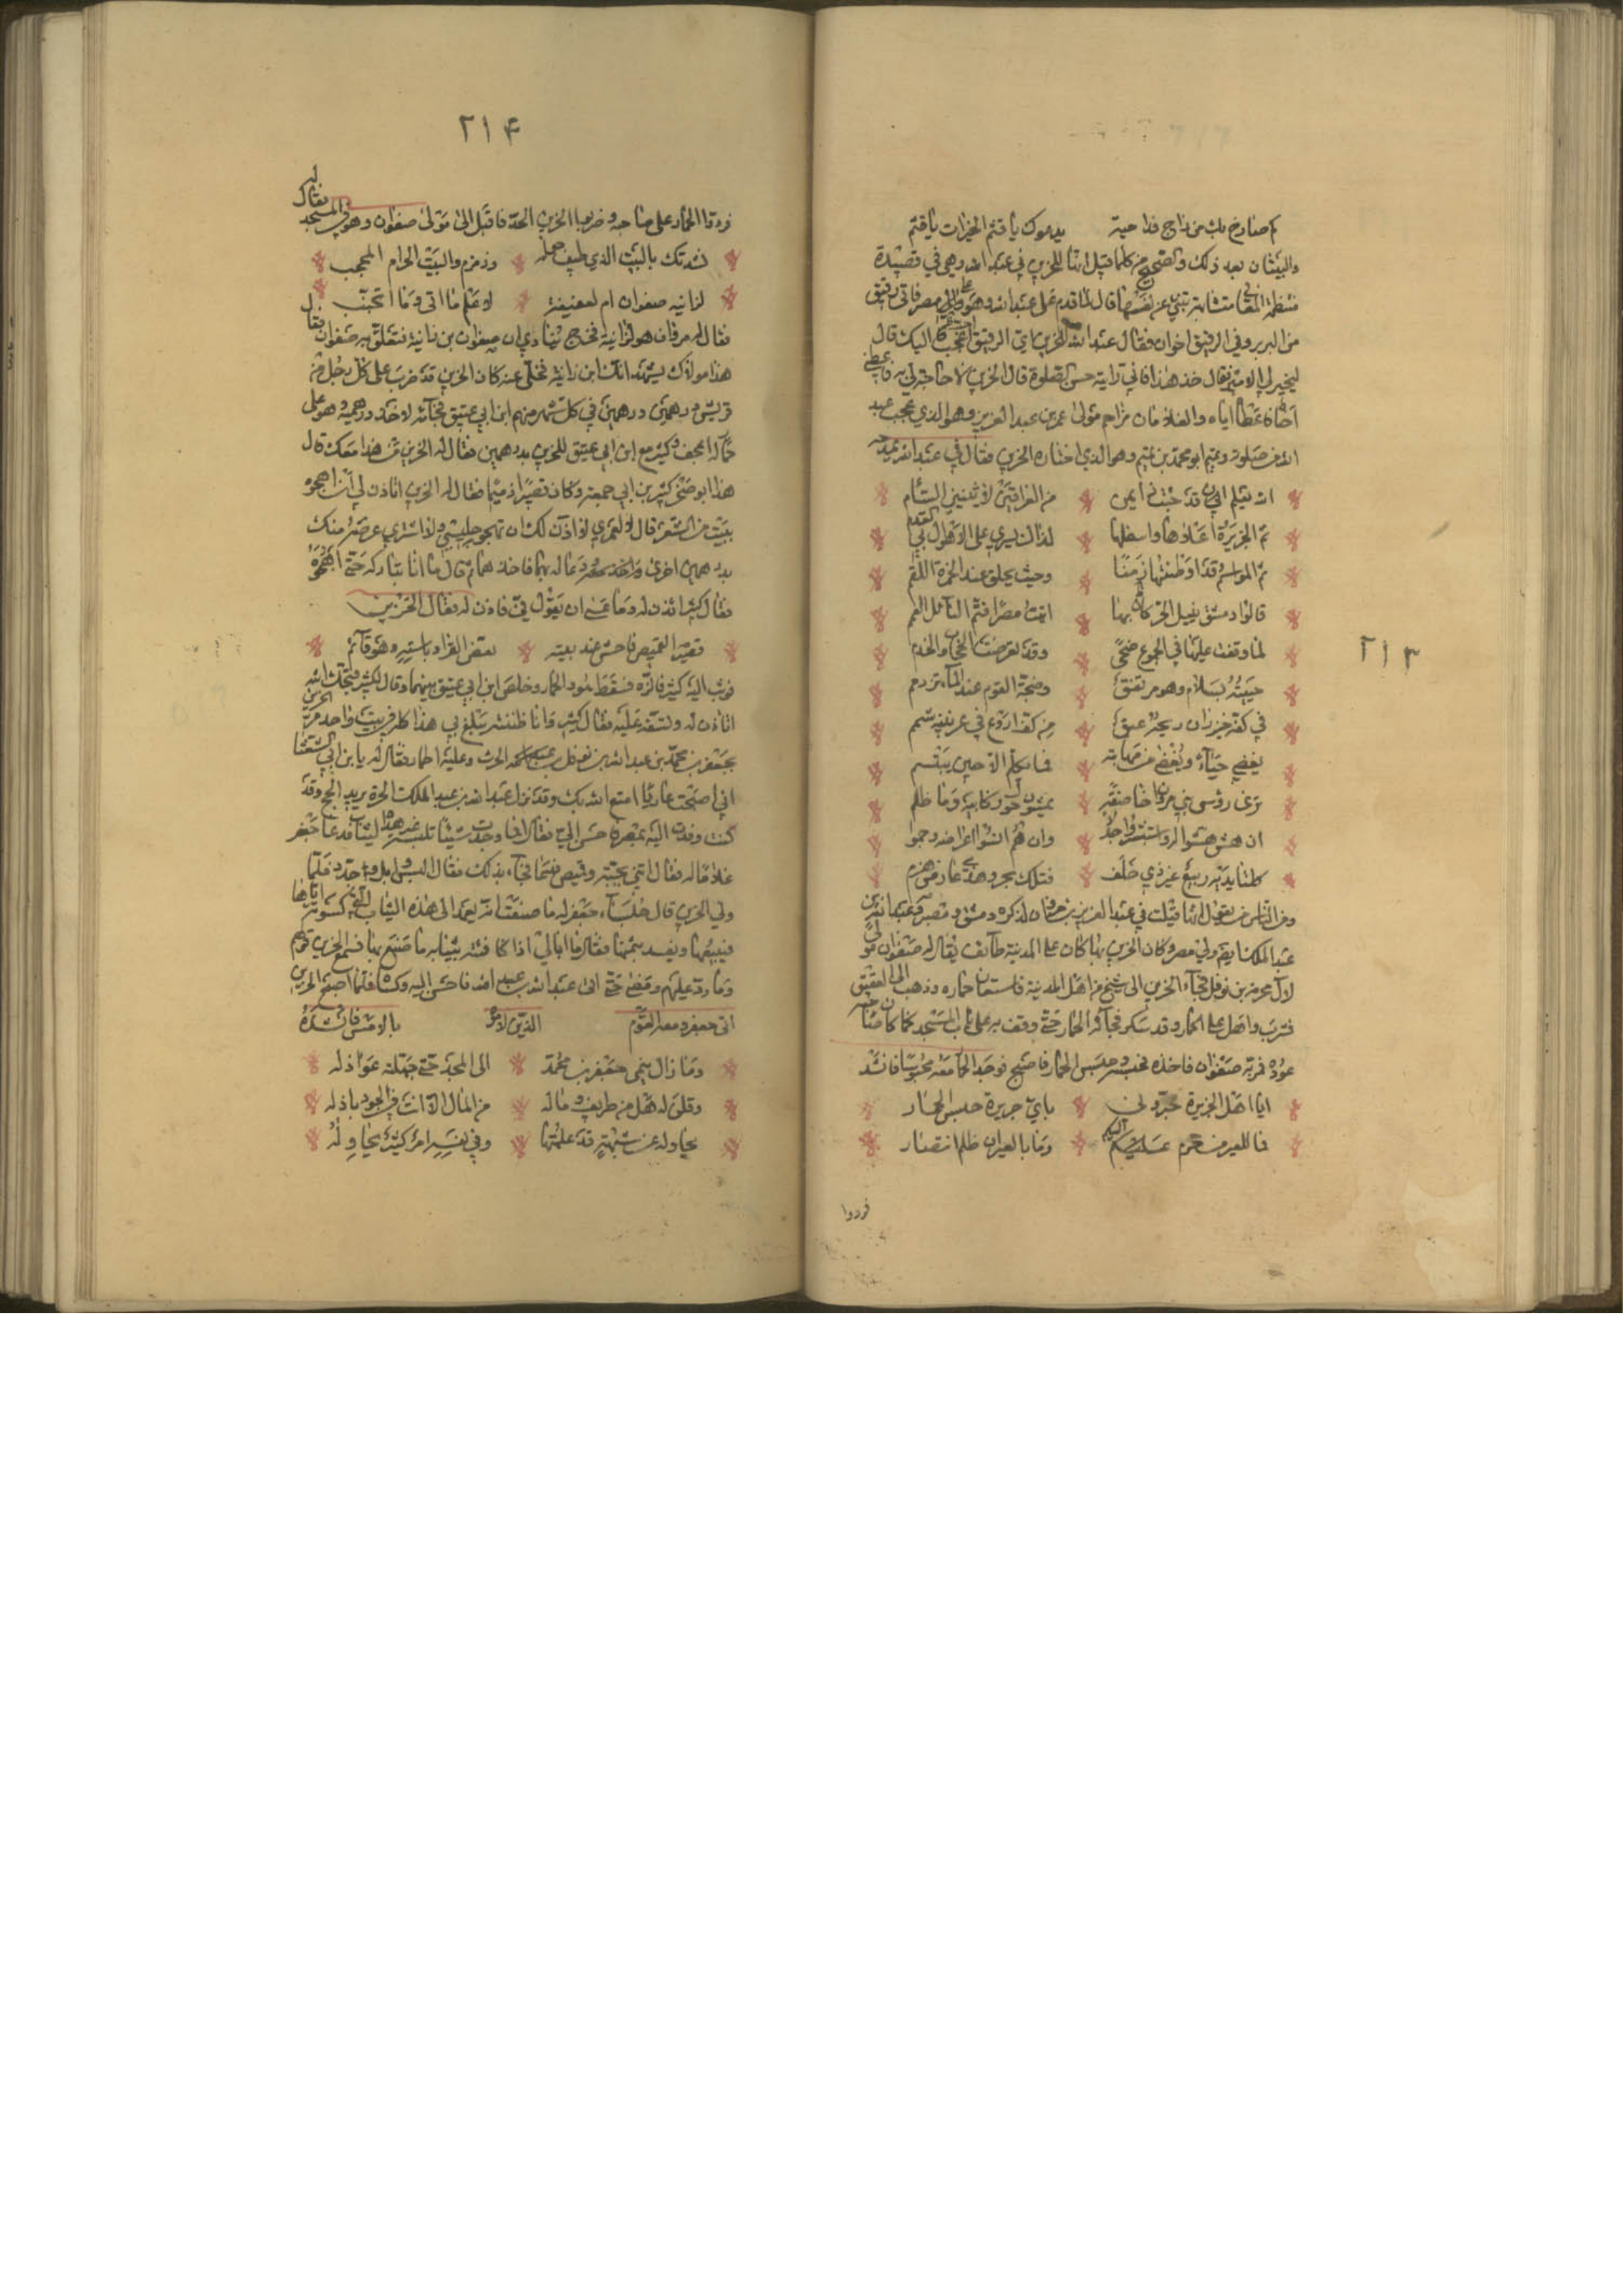 كم صارخ بك من راج وراجية يدعوك يا قثم الخيرات يا قثم
والبيتان بعد ذلك والصحيح من كلها قيل انها للحزين في عبد الله وهي في قصيدة
منتظمة المعاني متشابهة تنبي عن نفسها قال لما قدم على عبد الله وهو والي مصر فاتى برقيق
من البربر وفي الرقيق اخوان فقال عبد الله للحزين اي الرقيق اعجب اليك قال
ليختر لي الامير فقال خذ هذا فاني رايته حسن الصلوة قال الحزين لا حاجة لي به فاعطني
اخاه فاعطاه اياه والغلامان مزاحم مولى عمر بن عبد العزيز وهو الذي
وتميم ابو محمد بن تميم وهو الذي اختاره الحزين فقال في عبد الله
الله يعلم اني قد جئت ذا يمن من العراقين لا يثنيني السأم
ثم الجزيرة اعلاها واسفلها لذاك تسري على الاهوال بي القدم
ثم المواسم قد اوطنتها زمنا وحيث يحلق عند الجمرة اللمم
قالوا دمشق ينيل الخير كله بها ائت مصرا فثم النائل العمم
لما وقفت عليها في الجموع ضحى وقد تعرضت الحجاب والخدم
حييته بسلام وهو مرتفق وضجة القوم عند الباب تزدحم
في كفه خيزران ريحه عبق من كف اروع في عرنينه شمم
يغضي حياء ويغضى من مهابته فما يكلم الا حين يبتسم
ترى رؤس بني مروان خاضعة يمشون حول ركابيه وما ظلم
ان هش هشوا له واستبشروا جذلا وان هم انسوا اعراضه وجموا
كلتا يديه ربيع غير ذي خلف فتلك بحر وهذه عارض هزم
ومن الناس من يقول انها قيلت في عبد العزيز بن مروان لذكره دمشق ومصر
عبد الملك ايضا ولي مصر وكان الحزين بها كان على المدينة طائف يقال له صفوان مولى
لآل مخرمة بن نوفل فجاء الحزين الى شيخ من اهل المدينة فاستعار حماره وذهب الى العقيق
فشرب واقبل على الحمار وقد سكر فجاء به الحمار حتى وقف به على باب المسجد كما كان صاحبه
عوده فمر به صفوان فاخذه فحبسه وحبس الحمار فاصبح فوجد الحمار معه محبوسا فانشد
ايا اهل الجزيرة خبروني باي جريرة حبس الحمار
فما للعير من جرم اليكم وما بالعير ان ظلم انتصار
فردوا
٢١٣
٢١۴
فردوا الحمار على صاحبه وضربوا الحزين الحد فاقبل الى مولى صفوان وهو في المسجد فقال له
نشدتك بالبيت الذي طيف حوله وزمزم والبيت الحرام المحجب
لزانية صفوان ام لعفيفة لاعلم ما اتى وما اتجنب
فقال له مولاه هو لزانية فخرج ينادي ان صفوان بن زانية فتعلق به صفوان فقال
هذا مولاك يشهد انك ابن زانية فخلى عنه كان الحزين قد ضرب على كل رجل من
قريش درهمين درهمين في كل شهر منهم ابن ابي عتيق فجاءه لاخذ درهميه وهو على
حمار له اعجف وكثير مع ابن ابي عتيق للحزين بدرهمين فقال له الحزين من هذا معك قال
هذا ابو صخر كثير بن ابي جمعة وكان قصيرا ذميما فقال له الحزين اتاذن لي ان اهجوه
ببيت من الشعر قال لا لعمري لا اذن لك ان تهجو جليسي ولا اشتري عرضه منك
بدرهمين اخرى ودعا له بهما فاخذهما ثم قال ما انا بتاركه حتى اهجوه
فقال كثير ائذن له وما عسى ان يقول في فاذن له فقال الحزين
قصير القميص فاحش عند بيته يعض القراد باسته وهو قائم
فوثب اليه كثير فلكزه فسقط هو والحمار وخلص ابن ابي عتيق بينهما وقال لكثير قبحك الله
اتاذن له وتسفه عليه فقال كثير وانا ظننته يبلغ بي هذا كله في بيت واحد مر الحزين
بجعفر بن محمد بن عبد الله بن نوفل بن الحرث وعليه اطمار فقال له يا بن ابي الشعثاء
اني اصبحت عاريا امتع الله بك وقد نزل عبد الله بن عبد الملك الحرة يريد الحج وقد
كنت وفدت اليه بمصر فاحسن الي فقال افما وجدت شيئا تلبسه غير هذه الثياب فدعا جعفر
غلاما له فقال ائتني بجبة وقميص فجاء بذلك فقال البس ابل وجدد فلما
ولى الحزين قال جلساء جعفر له ما صنعت انه يعمد الى هذه الثياب التي كسوته اياها
فيبيعها ويفسد بثمنها فقال ما ابالي اذا كافئته بثيابه ما صنع بها فسمع الحزين قولهم
وما رد عليهم ومضى حتى اتى عبد الله بن عبد الملك فاحسن اليه وكساه فلما اصبح الحزين
اتى جعفر ومعه القوم الذين لاموه بالامس فانشده
وما زال ينمي جعفر بن محمد الى المجد حتى جهلته عواذله
وقلن له هل من طريف وما له من المال الا انت في الجود باذله
يحاولنه عن شيمة قد علمتها وفي نفسه امر كثير يحاوله